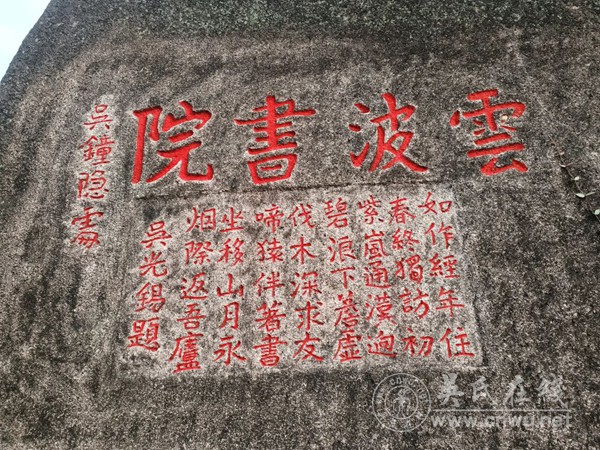 雲波書院
如作經年住
春終獨訪初
紫嵐通漢迥
碧浪下簷虛
伐木深求友
啼猿伴著書
坐移山月永
烟際返吾廬
吳光錫題
吳鐘隐
吴氏在线
www.cnwu.net